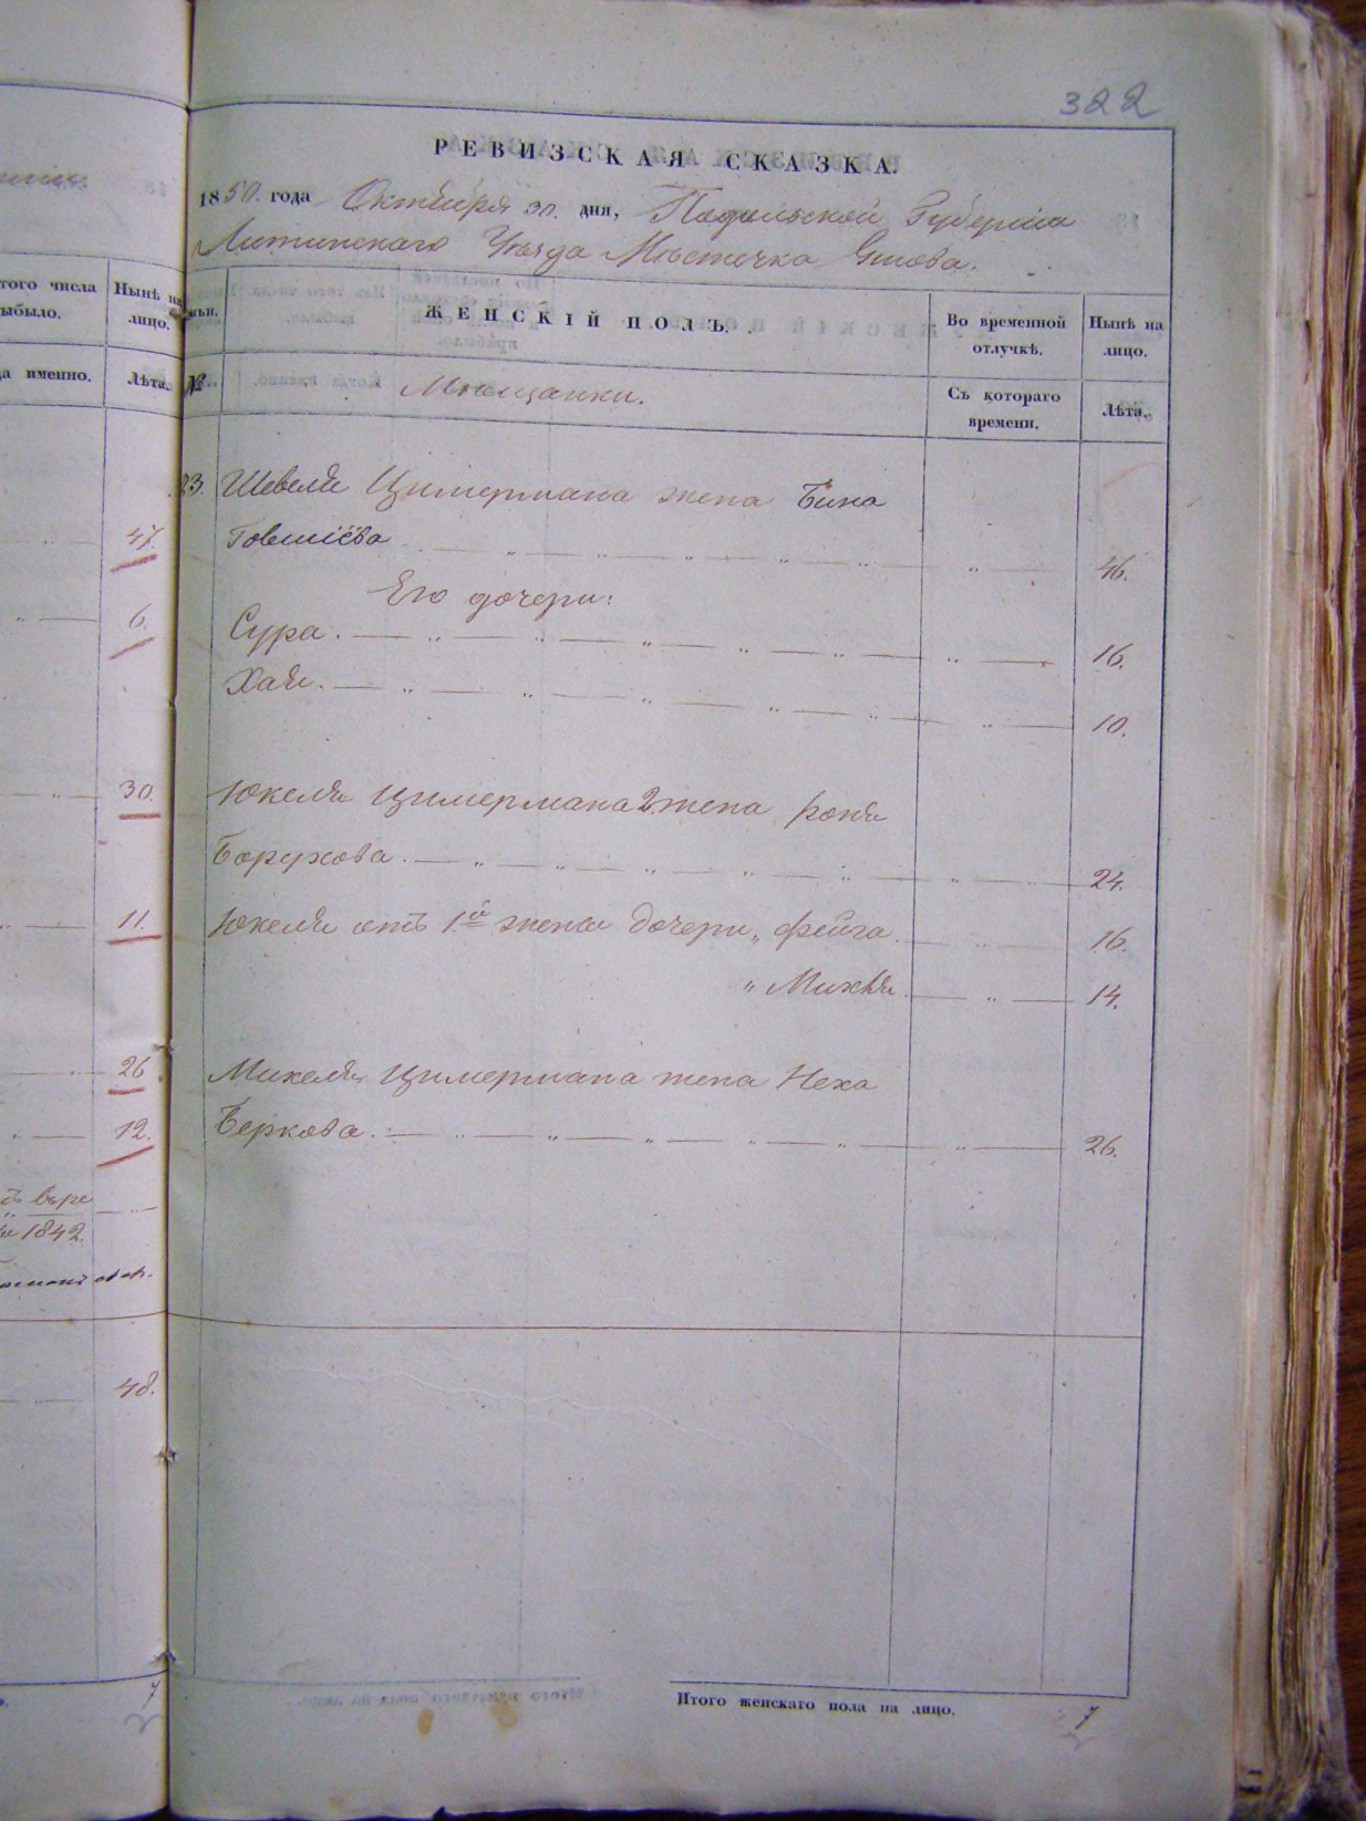 322
РЕВИЗСКАЯ СКАЗКА.
1850. года Октября 30. дня, Подольской Губернiи
Литинскаго Уѣзда Мѣстечка
того числа
ыбыло.
Нынѣ на
лицо.
а именно.
Лѣта.
ЖЕНСКIЙ ПОЛЪ.
Во временной
отлучкѣ.
Нынѣ на
лицо.
№
Мѣщанки.
Съ котораго
времени.
Лѣта.
23. Шевеля Цимермана жена Бина
Говшiева 46.
Его дочери:
Сура. 16.
Хая. 10.
Юкеля Цимермана 2. жена Роня
Борухова. 24.
Юкеля отъ 1й жены дочери „ Фейга. 16.
„ Михля 14.
Михеля Цимермана жена Неха
Беркова. 26.
47.
6.
30.
11.
26
12.
1842.
48.
7
Итого женскаго пола на лицо. 7